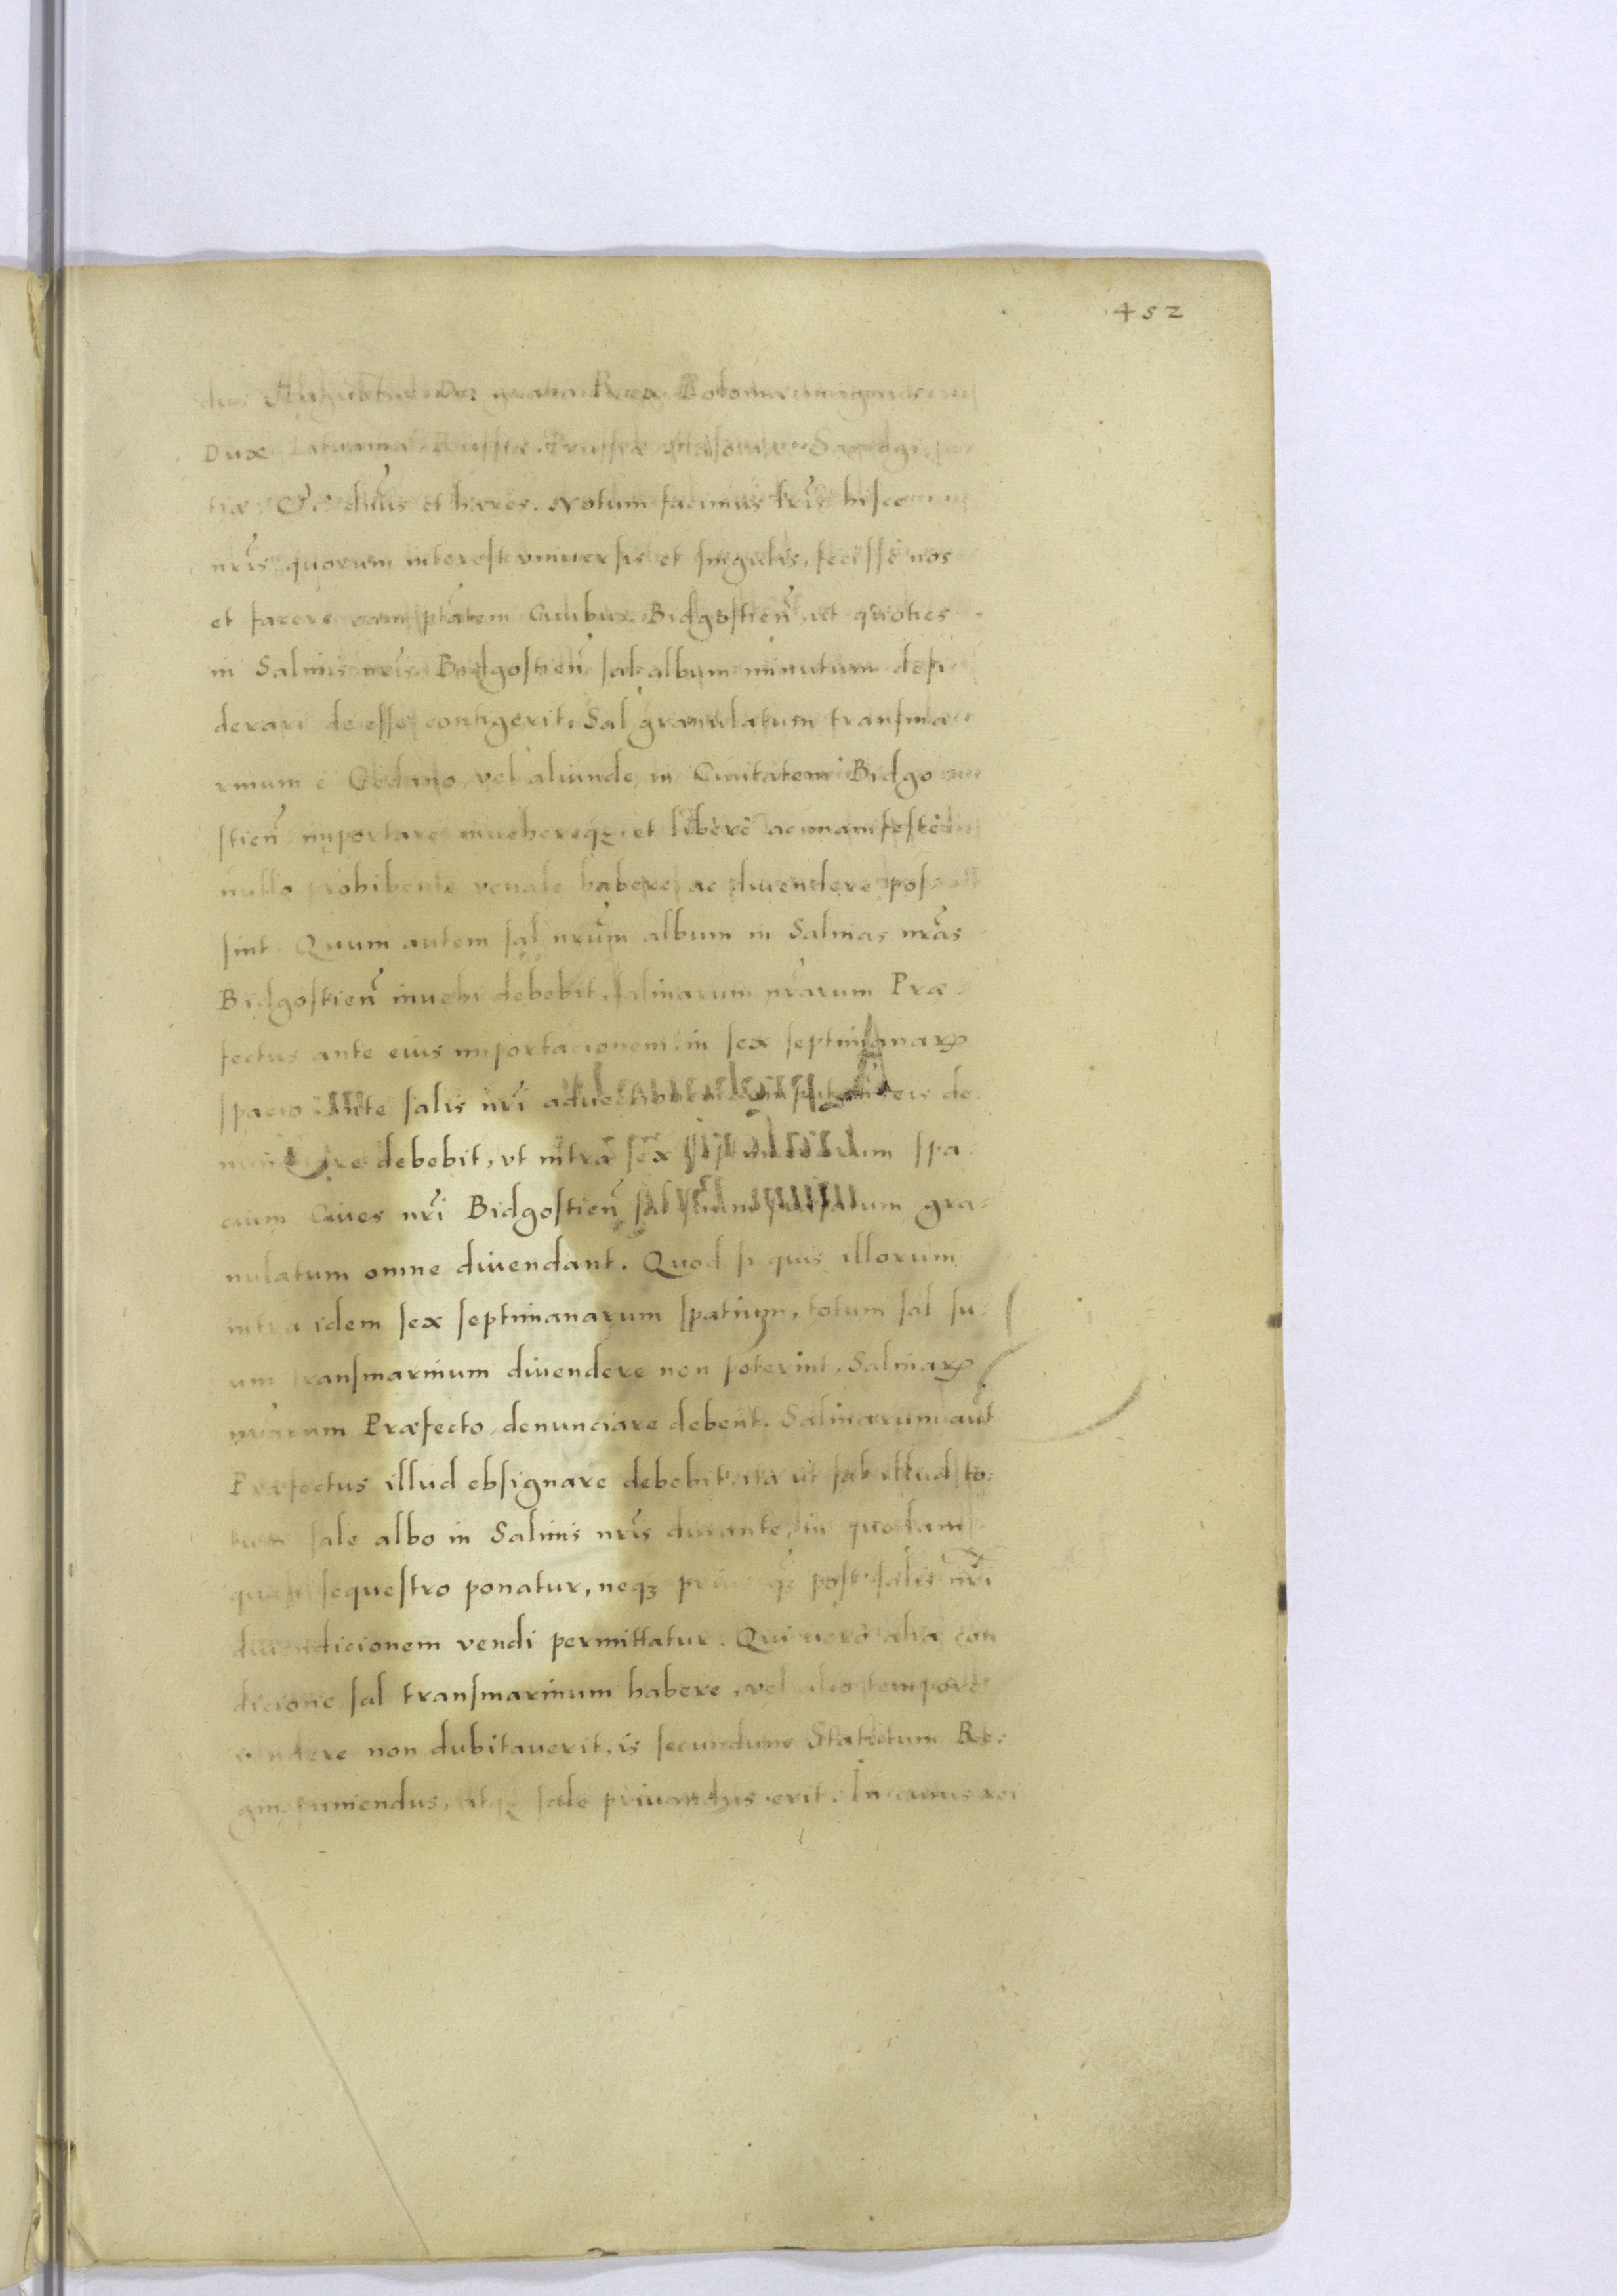 452
dus Augustus Dei gratia Rex Poloniæ magnus
Dux Lituaniæ Russiæ Prussiæ Masoviæ Samogi
tiæ &c. dñus et hæres. Notum facimus lr̃is hisce
nr̃is quorum interest vniuersis et singulis, fecisse nos
et facere ptãtem Ciuibus Bidgostieñ, ut quoties
in Salinis nr̃is Bidgostieñ sal album minutum desi
derari de esse contigerit. Sal granulatum transma
rinum è Gedano, vel aliunde, in Ciuitatem Bidgo
stieñ importare inuehereqꝫ, et liberè ac manifestè
nullo prohibente venale habere, ac diuendere pos-
sint. Quum autem sal nr̃um album in Salinas nr̃as
Bidgostieñ inuehi debebit, salinarum nr̃arum Præ-
fectus ante eius importacionem, in sex septimanaꝝ
spacio ante salis nr̃i eis de
debebit, vt intra sex spa
cium Ciues nr̃i Bidgostieñ sal gra-
nulatum omne diuendant. Quod si quis illorum
intra idem sex septimanarum spatium, totum sal su-
um transmarinum diuendere non poterint. Salinaꝝ
nr̃arum Præfecto denunciare debent. Salinarum aũt
Præfectus illud obsignare debebit, ita ut sal illud to-
tum sale albo in Salinis nr̃is durante, in quodam
quasi sequestro ponatur, neqꝫ prius qꝫ post salis nr̃i
diuendicionem vendi permittatur. Qui uerò alia con
dicione sal transmarinum habere, vel alio tempore
vendere non dubitauerit, is secundum Statutum Re-
gni puniendus, atqꝫ sale priuandus erit. In cuius rei